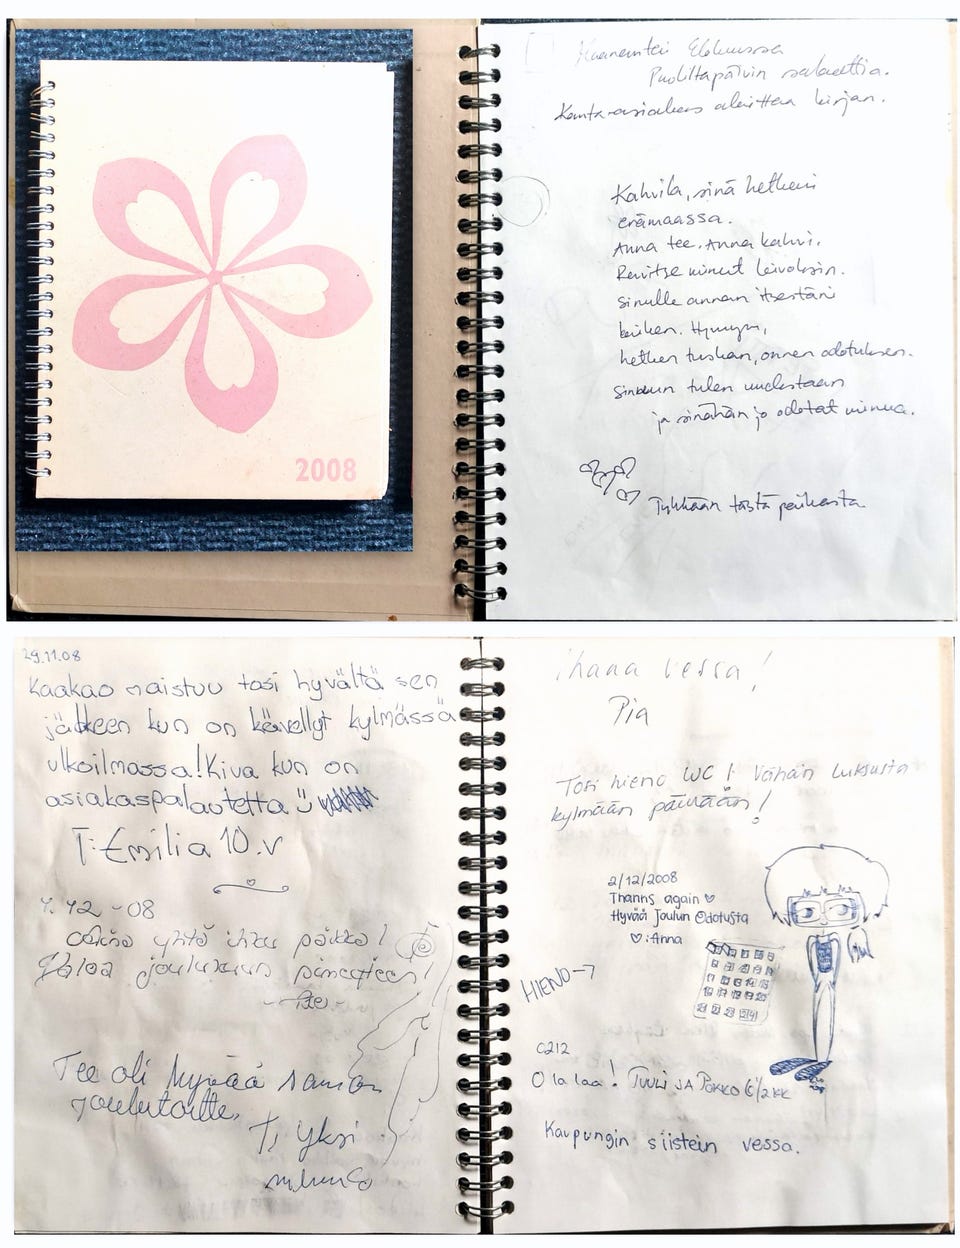 2008
Huomenten Elokuussa
Puoliltapäivin salaattia.
Kanta-asiakas aloittaa kirjan.
Kahvila, sinä hetkeni
erämaassa.
Anna tee. Anna kahvi.
Ravitse minut leivoksin.
Sinulle annan itsestäni
kaiken. Hymyni,
hetken tuskan, onnen odotuksen.
Sinuun tulen uudestaan
ja sinähän jo odotat minua.
Tykkään tästä paikasta
29.11.08
Kaakao maistuu tosi hyvältä sen
jälkeen kun on kävellyt kylmässä
ulkoilmassa! Kiva kun on
asiakaspalautetta
T: Emilia 10.v
12 -08
yhtä ihku paikka!
Valoa joulukuun pimeyteen!
Tee oli hyvää samoin
joulutorttu.
T: Yksi
ihana vessa!
Pia
Tosi hieno WC! Vähän luksusta
kylmään päivään!
2/12/2008
Thanns again ♡
Hyvää Joulun Odotusta
♡:Anna
HIENO→
O la laa! TUULI JA POKKO 6 1/2 kk
Kaupungin siistein vessa.